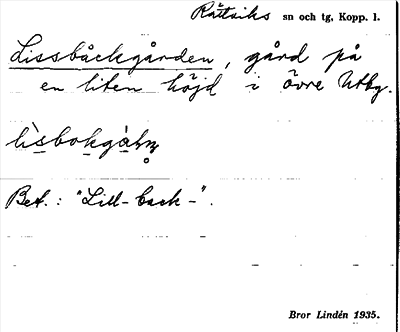 Rättviks sn och tg, Kopp. l.
Lissbäckgården, gård på
en liten höjd i övre Utby.
Bet.: "Lill-back-".
Bror Lindén 1935.